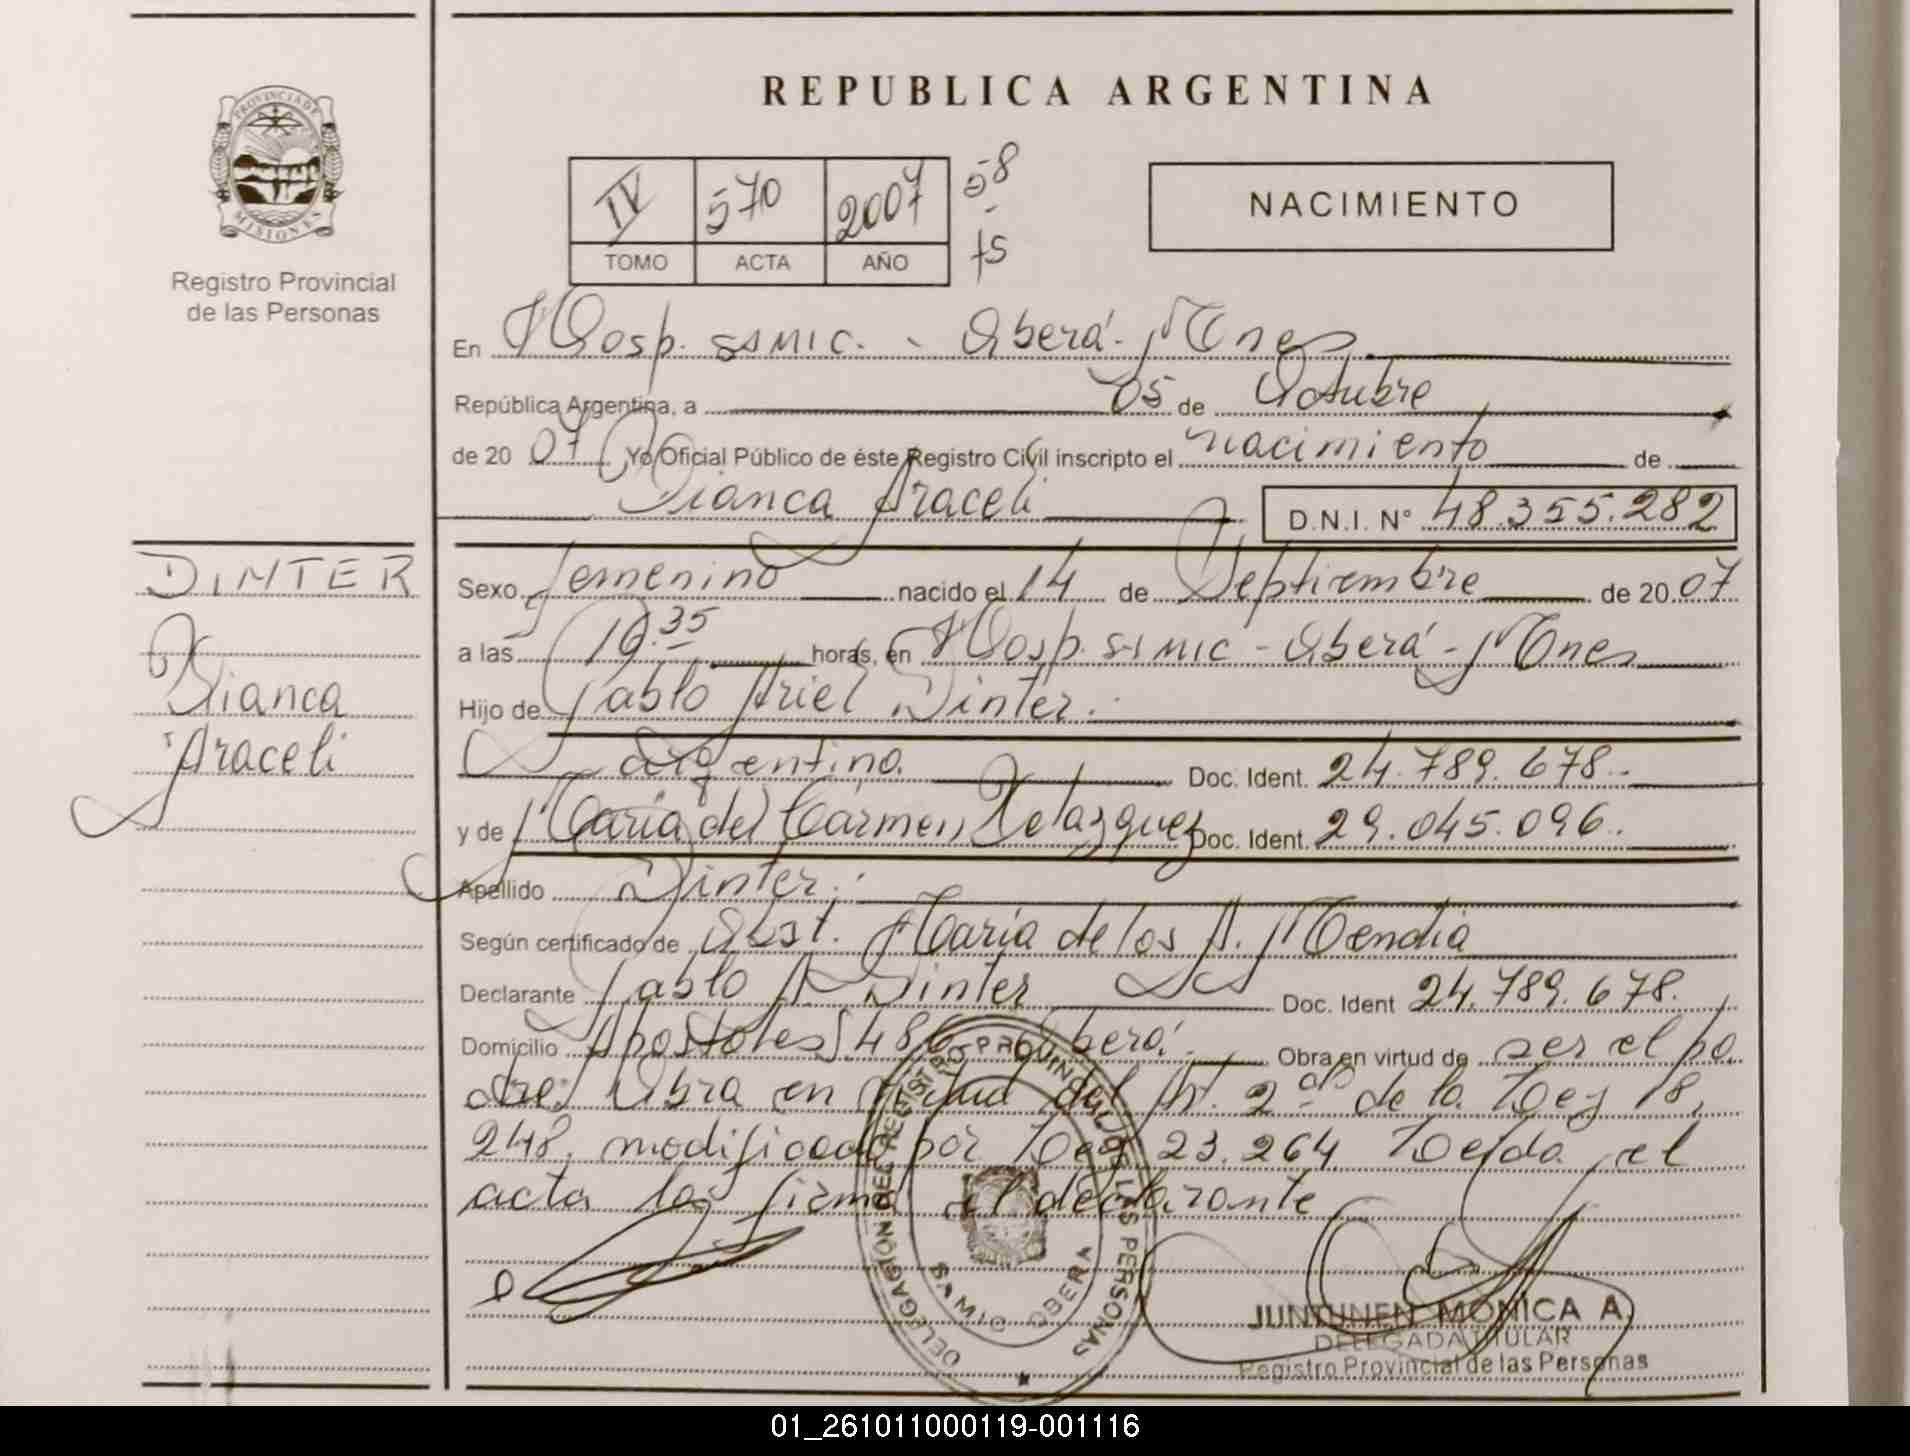 PROVINCIA DE
MISIONES
Registro Provincial
de las Personas
DINTER
Bianca
Araceli
REPUBLICA ARGENTINA
IV 570 2007 58
- 75
TOMO ACTA AÑO
NACIMIENTO
En Hosp. SAMIC. - Oberá - Mnes
República Argentina, a 05 de Octubre
de 20 07 Yo Oficial Público de éste Registro Civil inscripto el nacimiento de
Bianca Araceli D.N.I. N° 48.355.282
Sexo femenino nacido el 14 de Septiembre de 20 07
a las 19.35 horas, en Hosp. SAMIC - Oberá - Mnes
Hijo de Pablo Ariel Dinter.
argentino. Doc. Ident. 24.789.678.
y de María del Carmen Velazquez Doc. Ident. 29.045.096.
Apellido Dinter.
Según certificado de Obst. María de los A. Mendia
Declarante Pablo A. Dinter Doc. Ident 24.789.678.
Domicilio Apostoles 486 Oberá. Obra en virtud de ser el pa
dre. Obra en virtud del Art. 2° de la Ley 18.
248, modificado por Ley 23.264 Leída el
acta la firma el declarante
DELEGACIÓN DEL REGISTRO PROVINCIAL DE LAS PERSONAS
SAMIC OBERA
JUNTUNEN MONICA A.
DELEGADA TITULAR
Registro Provincial de las Personas
01_261011000119-001116